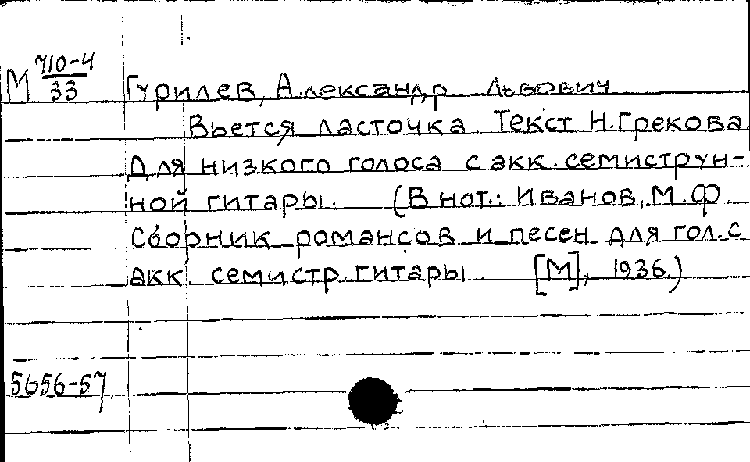 М 710-4
33
Гурилев, Александр Львович
Вьется ласточка Текст Н.Грекова
Для низкого голоса с акк. семиструн-
ной гитары. (В нот.: Иванов, М.Ф.
Сборник романсов и песен для гол. с
акк. семистр. гитары [М], 1936.)
5656-57